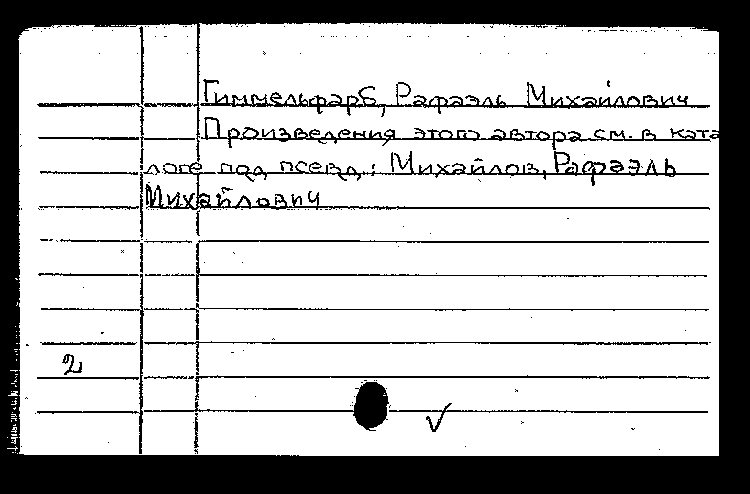 Гиммельфарб, Рафаэль Михайлович
Произведения этого автора см. в ката
логе под псевд.: Михайлов, Рафаэль
Михайлович
2